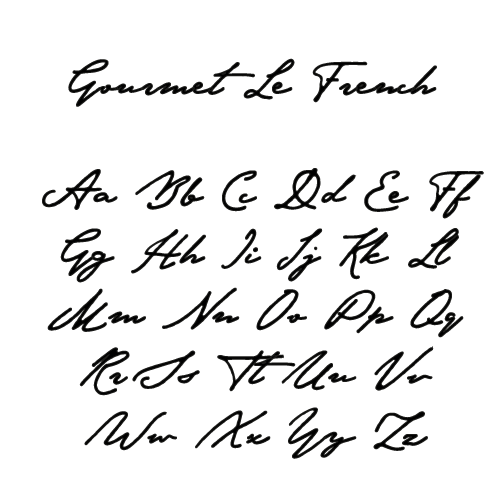 Gourmet Le French
Aa Bb Cc Dd Ee Ff
Gg Hh Ii Jj Kk Ll
Mm Nn Oo Pp Qq
Rr Ss Tt Uu Vv
Ww Xx Yy Zz